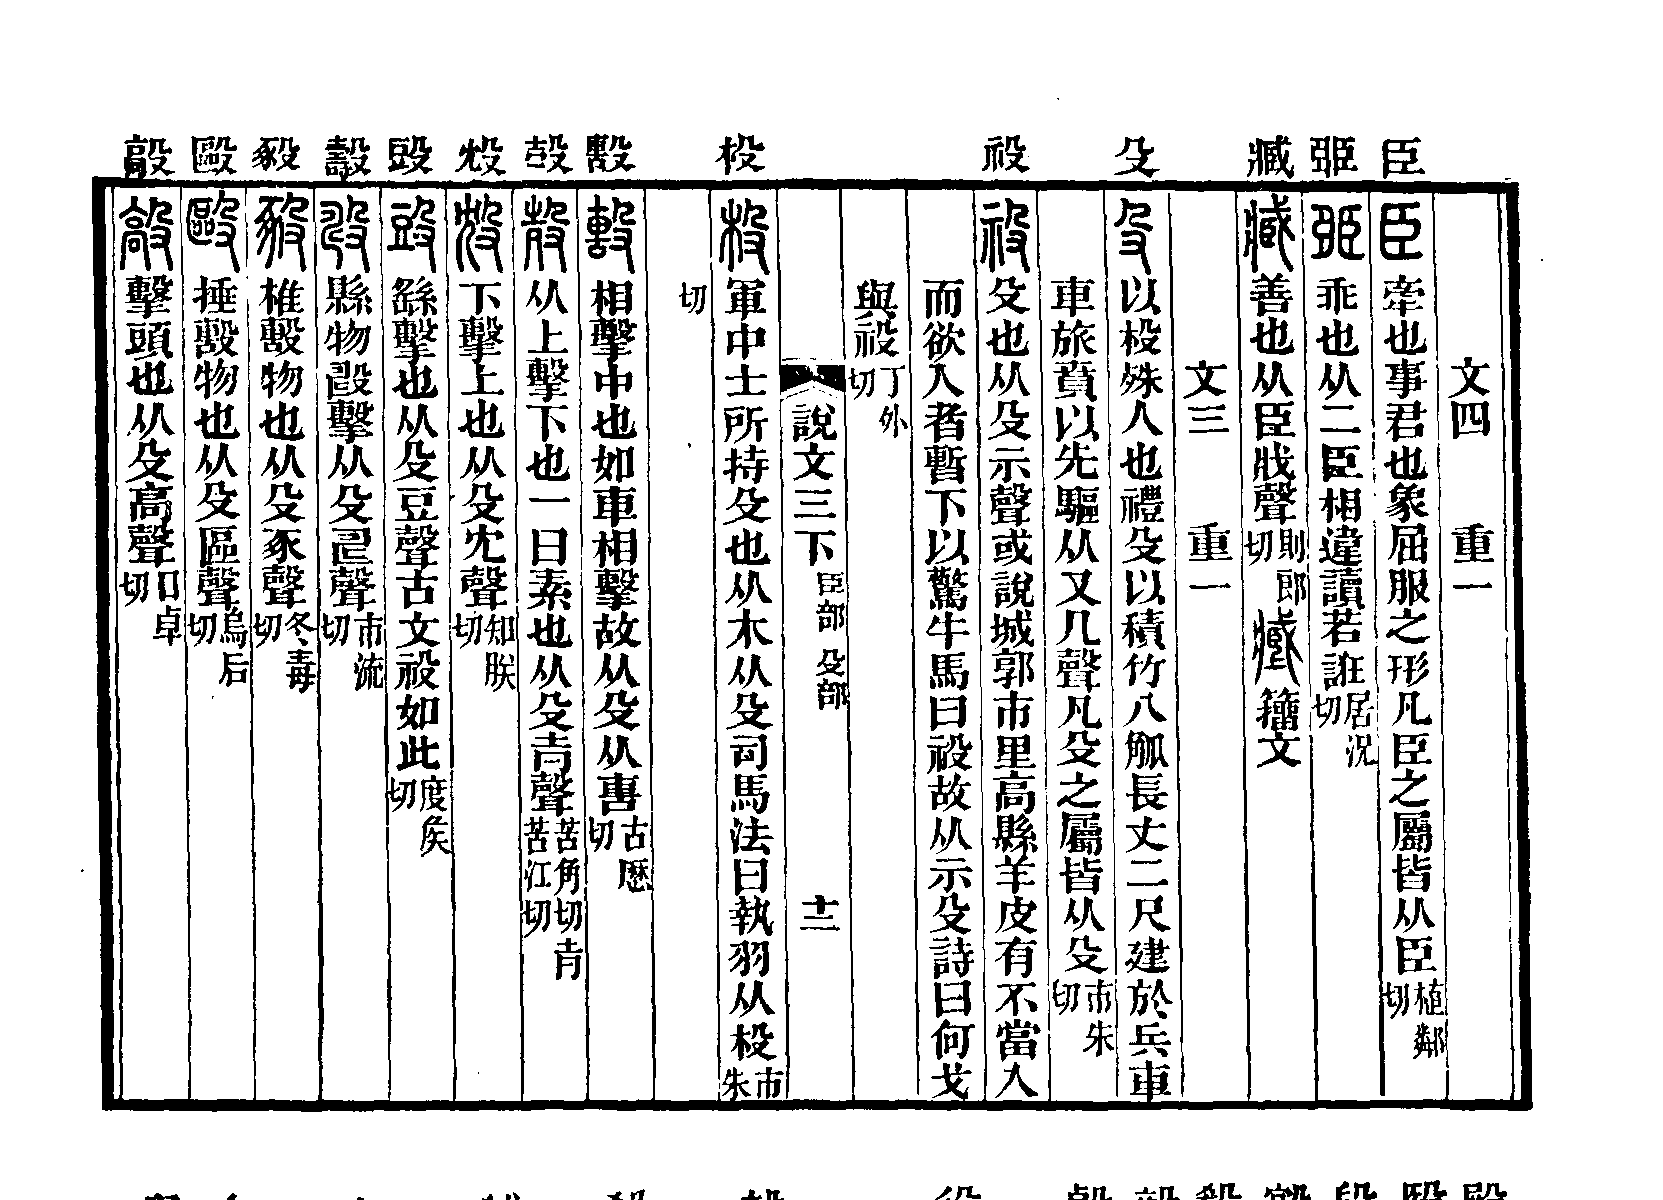 臣 臦 臧 殳 祋 杸 毄 㱿 㲀 㪗 𣪠 㲄 毆 敲
文四 重一
臣 牽也事君也象屈服之形凡臣之屬皆从臣植鄰切
臦 乖也从二臣相違讀若誑居況切
臧 善也从臣戕聲則郎切 籒文
文三 重一
殳 以杸殊人也禮殳以積竹八觚長丈二尺建於兵車
車旅賁以先驅从又几聲凡殳之屬皆从殳市朱切
祋 殳也从殳示聲或說城郭市里高縣羊皮有不當入
而欲入者暫下以驚牛馬曰祋故从示殳詩曰何戈
與祋丁外切
說文三下 臣部 殳部 十二
杸 軍中士所持殳也从木从殳司馬法曰執羽从杸市朱
切
毄 相擊中也如車相擊故从殳从軎古歷切
㱿 从上擊下也一曰素也从殳𡉉聲苦角切 苦江切
下擊上也从殳冘聲知朕切
繇擊也从殳豆聲古文祋如此度矦切
縣物擊从殳聲市流切
椎毄物也从殳豕聲冬毒切
毆 捶毄物也从殳區聲烏后切
擊頭也从殳高聲口卓切